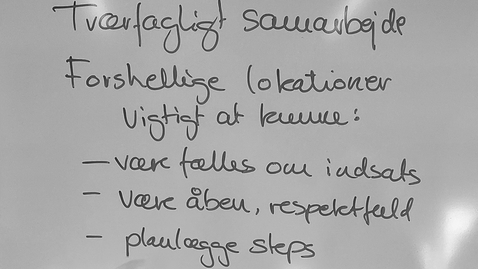 Tværfagligt samarbejde
Forskellige lokationer
vigtigt at kunne:
— være fælles om indsats
- være åben, respektfuld
- planlægge steps